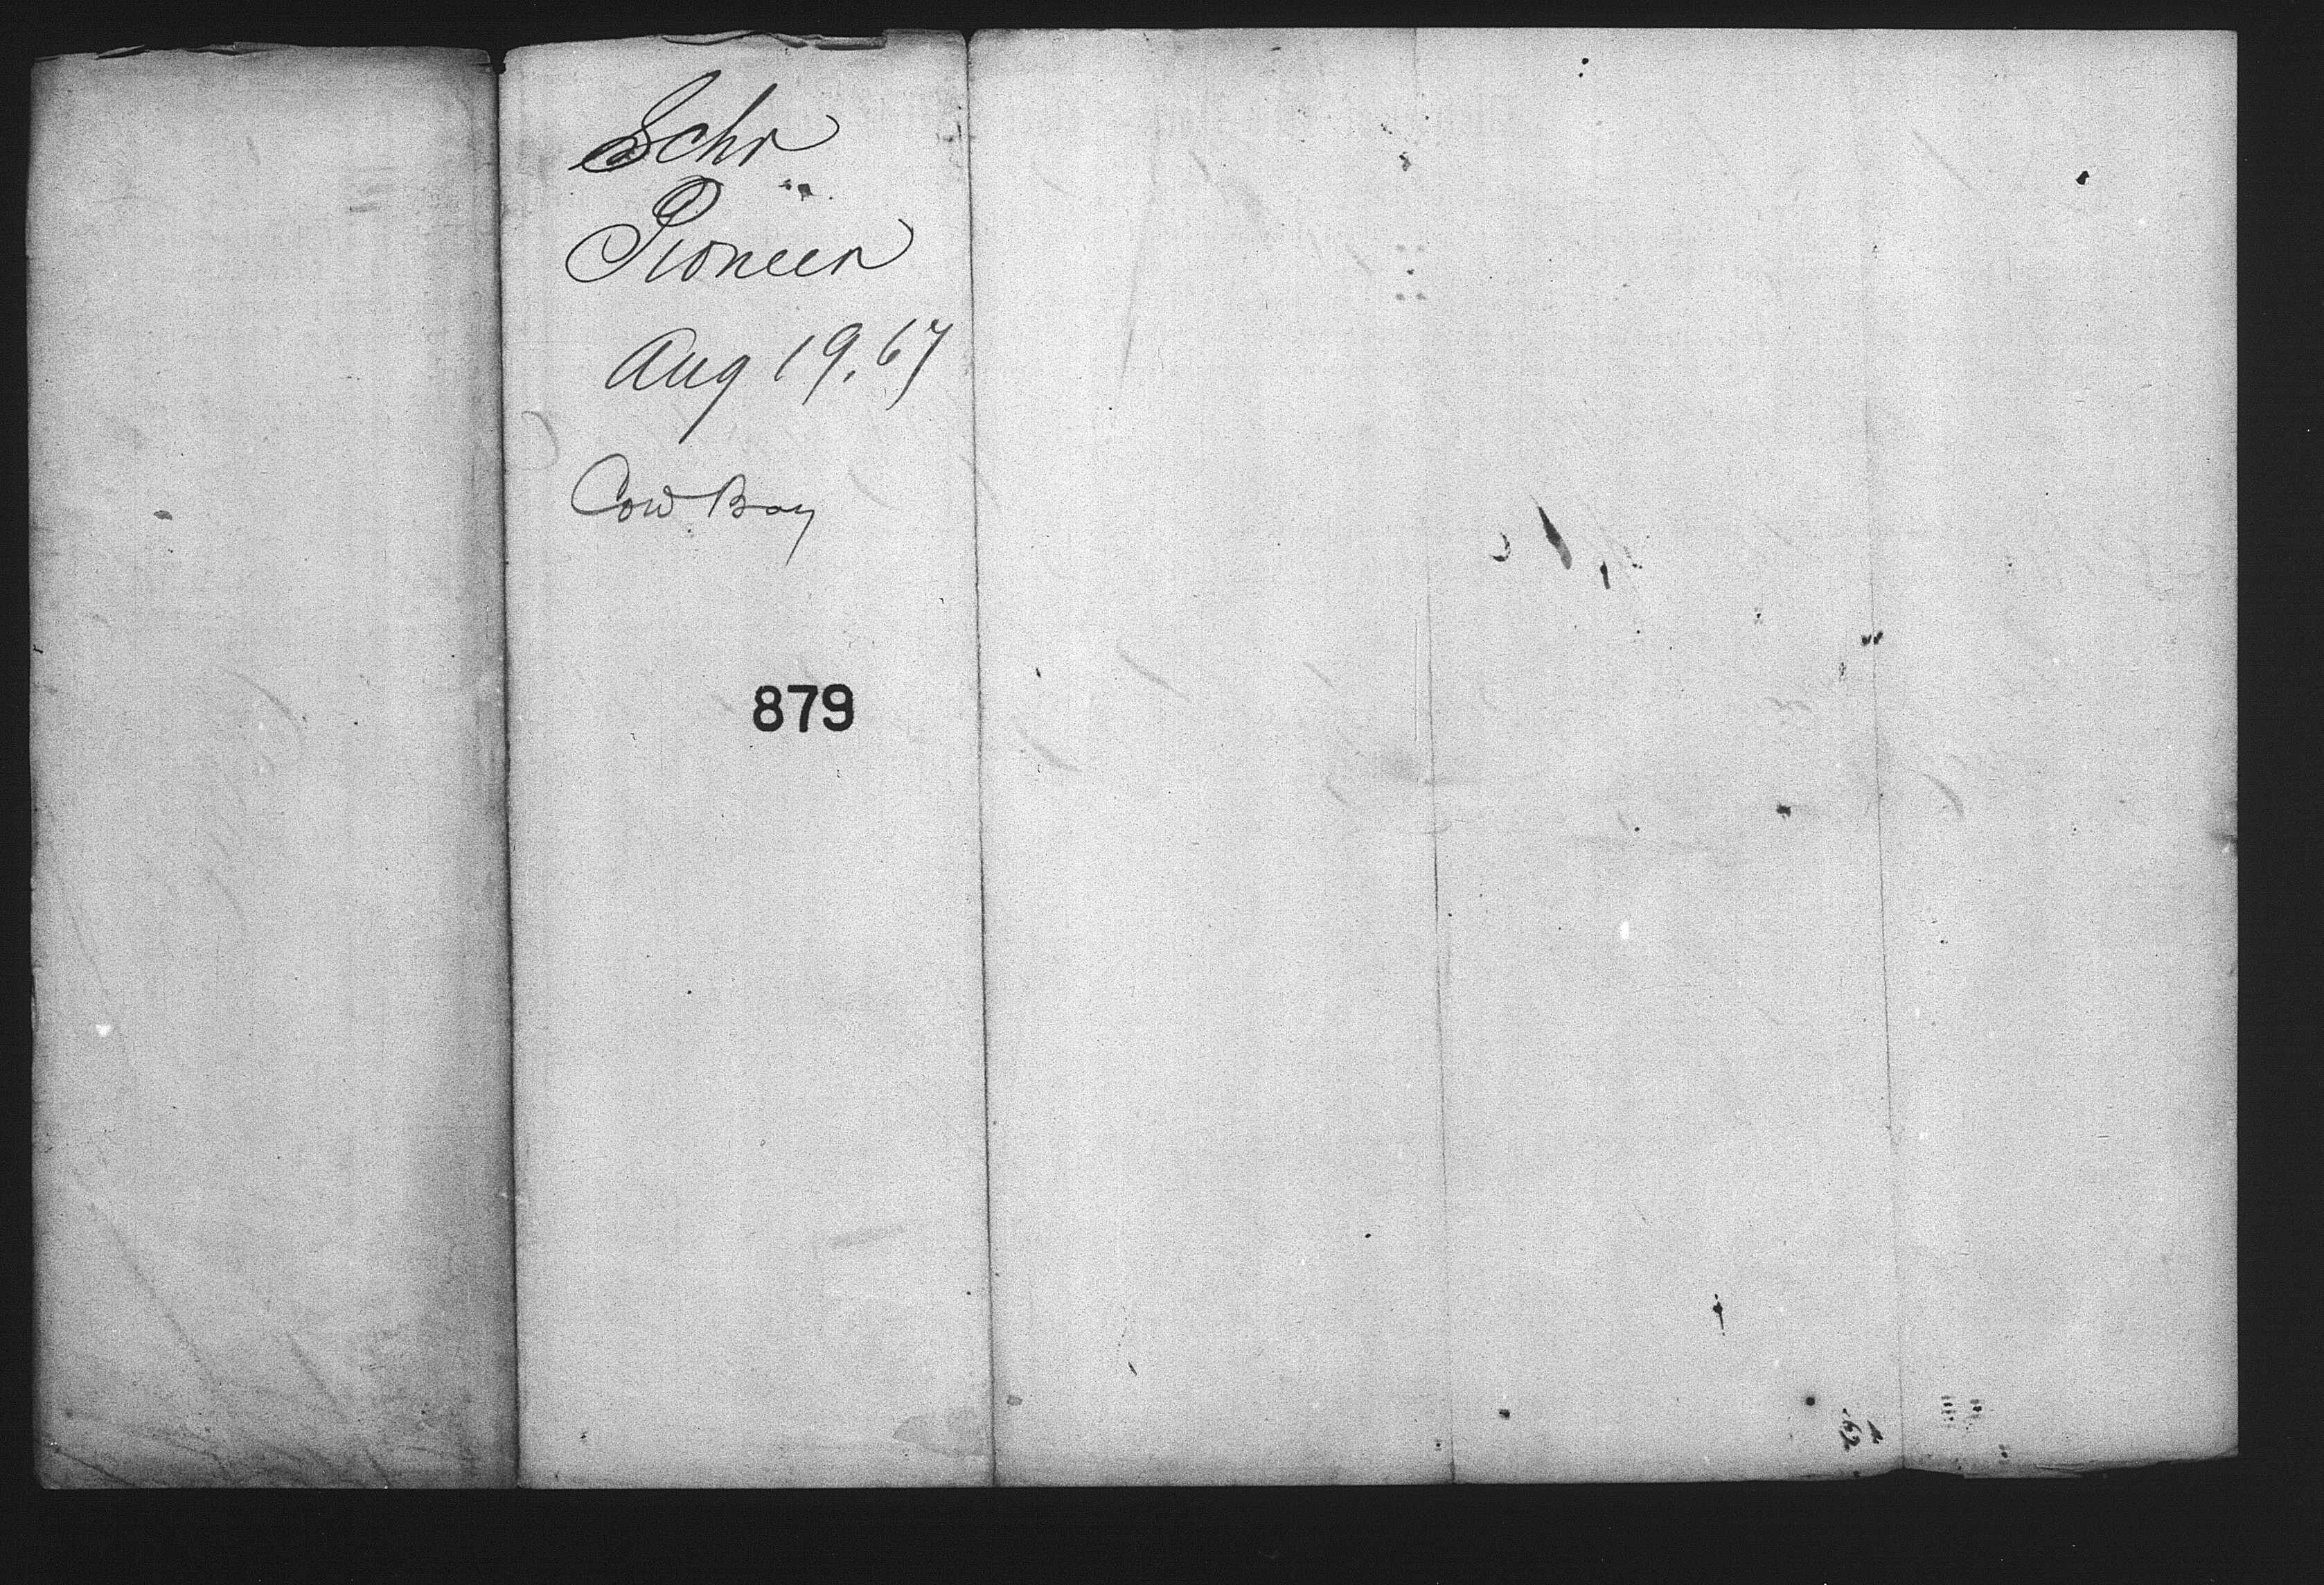 Schr
Pioneer
Aug 19. 67
Cow Bay
879